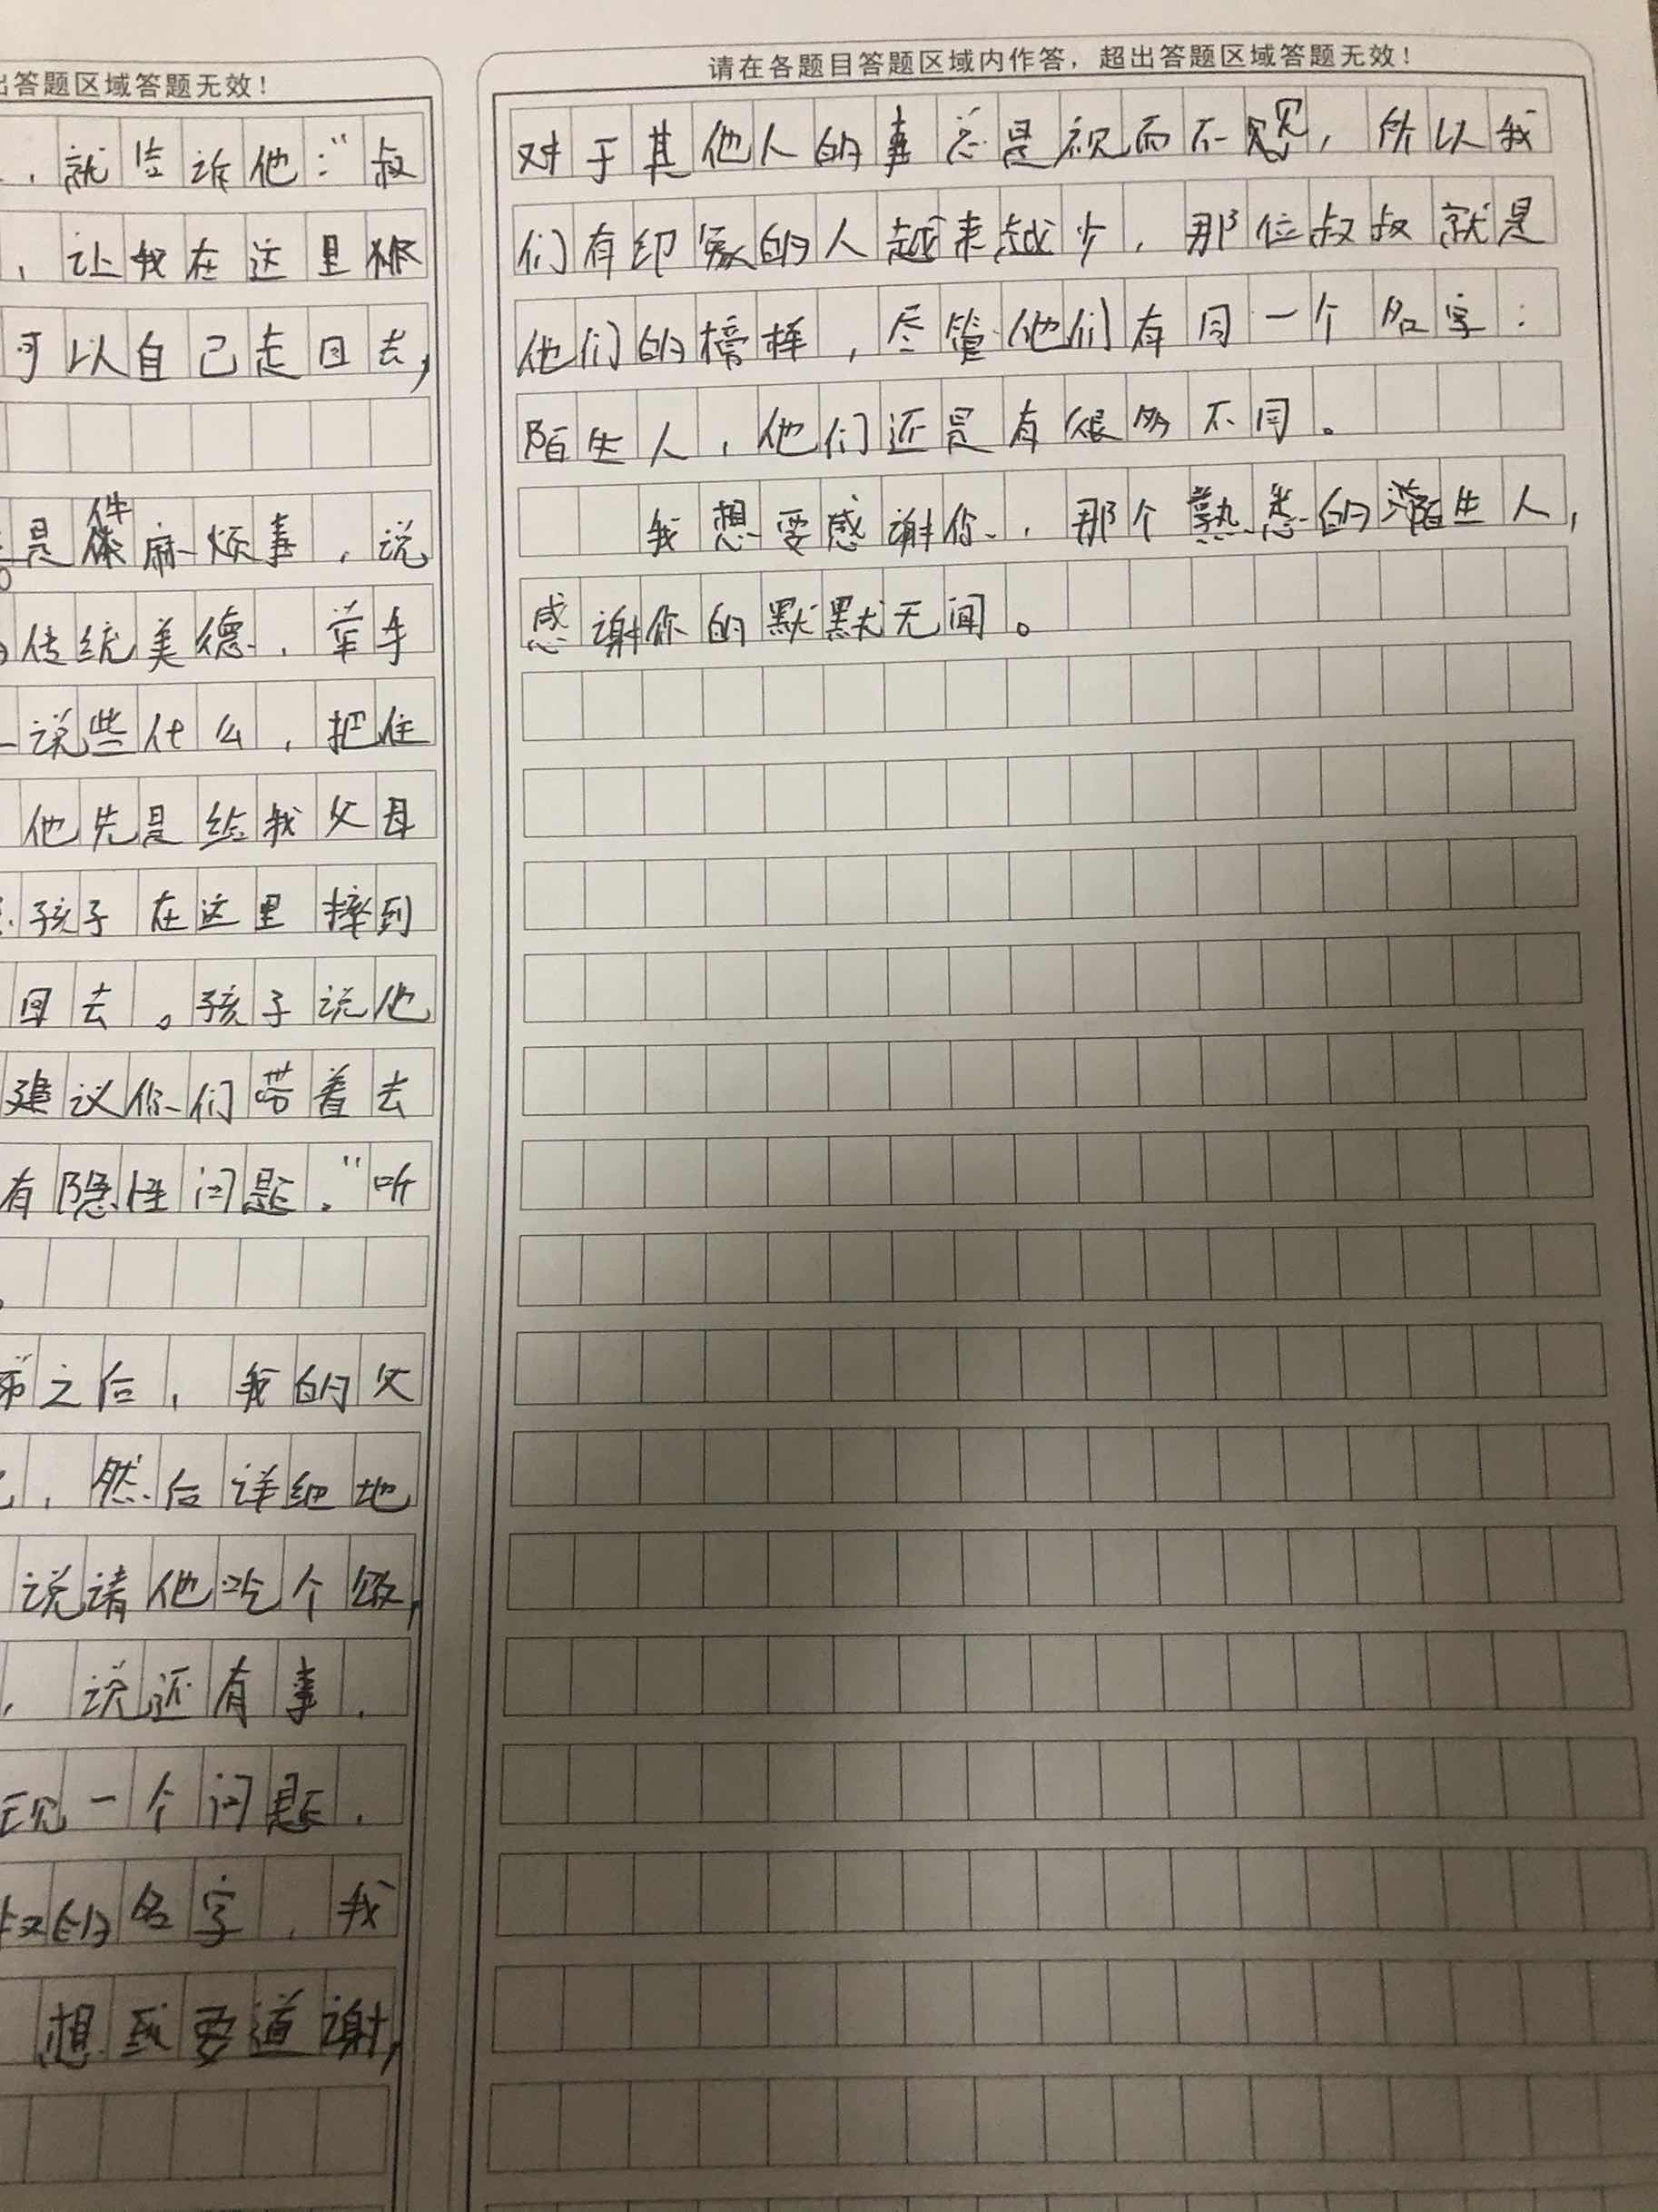 出答题区域答题无效！
，就告诉他：“叔
，让我在这里
可以自己走回去，
是件麻烦事，说
传统美德，牵手
说些什么，把住
他先是给我父母
孩子在这里摔到
回去。孩子说他
建议你们带着去
有隐性问题。”听
。
之后，我的父
，然后详细地
说请他吃个饭，
，说还有事，
现一个问题，
叔的名字，我
想我要道谢，
请在各题目答题区域内作答，超出答题区域答题无效！
对于其他人的事总是视而不见，所以我
们有印象的人越来越少，那位叔叔就是
他们的榜样，尽管他们有同一个名字：
陌生人，他们还是有很多不同。
我想要感谢你，那个熟悉的陌生人，
感谢你的默默无闻。